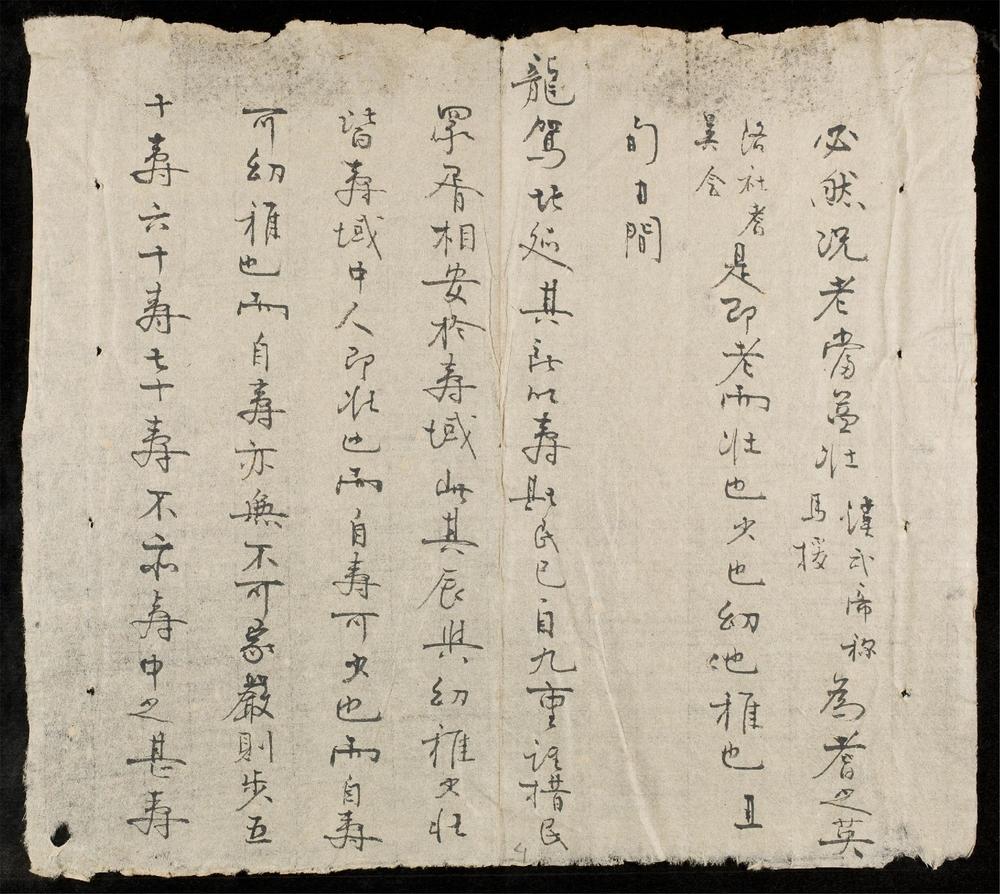 必然况老當益壯漢武帝称馬援為耆之英
洛社耆英会是即老而壯也少也幼也稚也且
旬日間
龍駕北巡其所以壽斯民已自九重詔措民
眾胥相安於壽域此其辰與幼稚少壯
皆壽域中人即壯也而自壽可少也而自壽
可幼稚也而自壽亦無不可家嚴則步五
十壽六十壽七十壽不亦壽中之甚壽